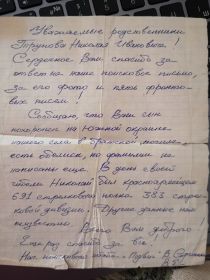 Уважаемые родственники
Трунова Николая Ивановича!
Сердечное Вам спасибо за
ответ на наше поисковое письмо,
за его фото и пять фронто-
вых писем!
Сообщаю, что Ваш сын
похоронен на Южной окраине
нашего села в братской
есть обелиск, но фамилии не
написаны еще. В день своей
гибели Николай был красноармейцем
691 стрелкового полка 383 стрел-
ковой дивизии. Другие данные нам
неизвестны.
Всего Вам доброго.
Еще раз спасибо за все!